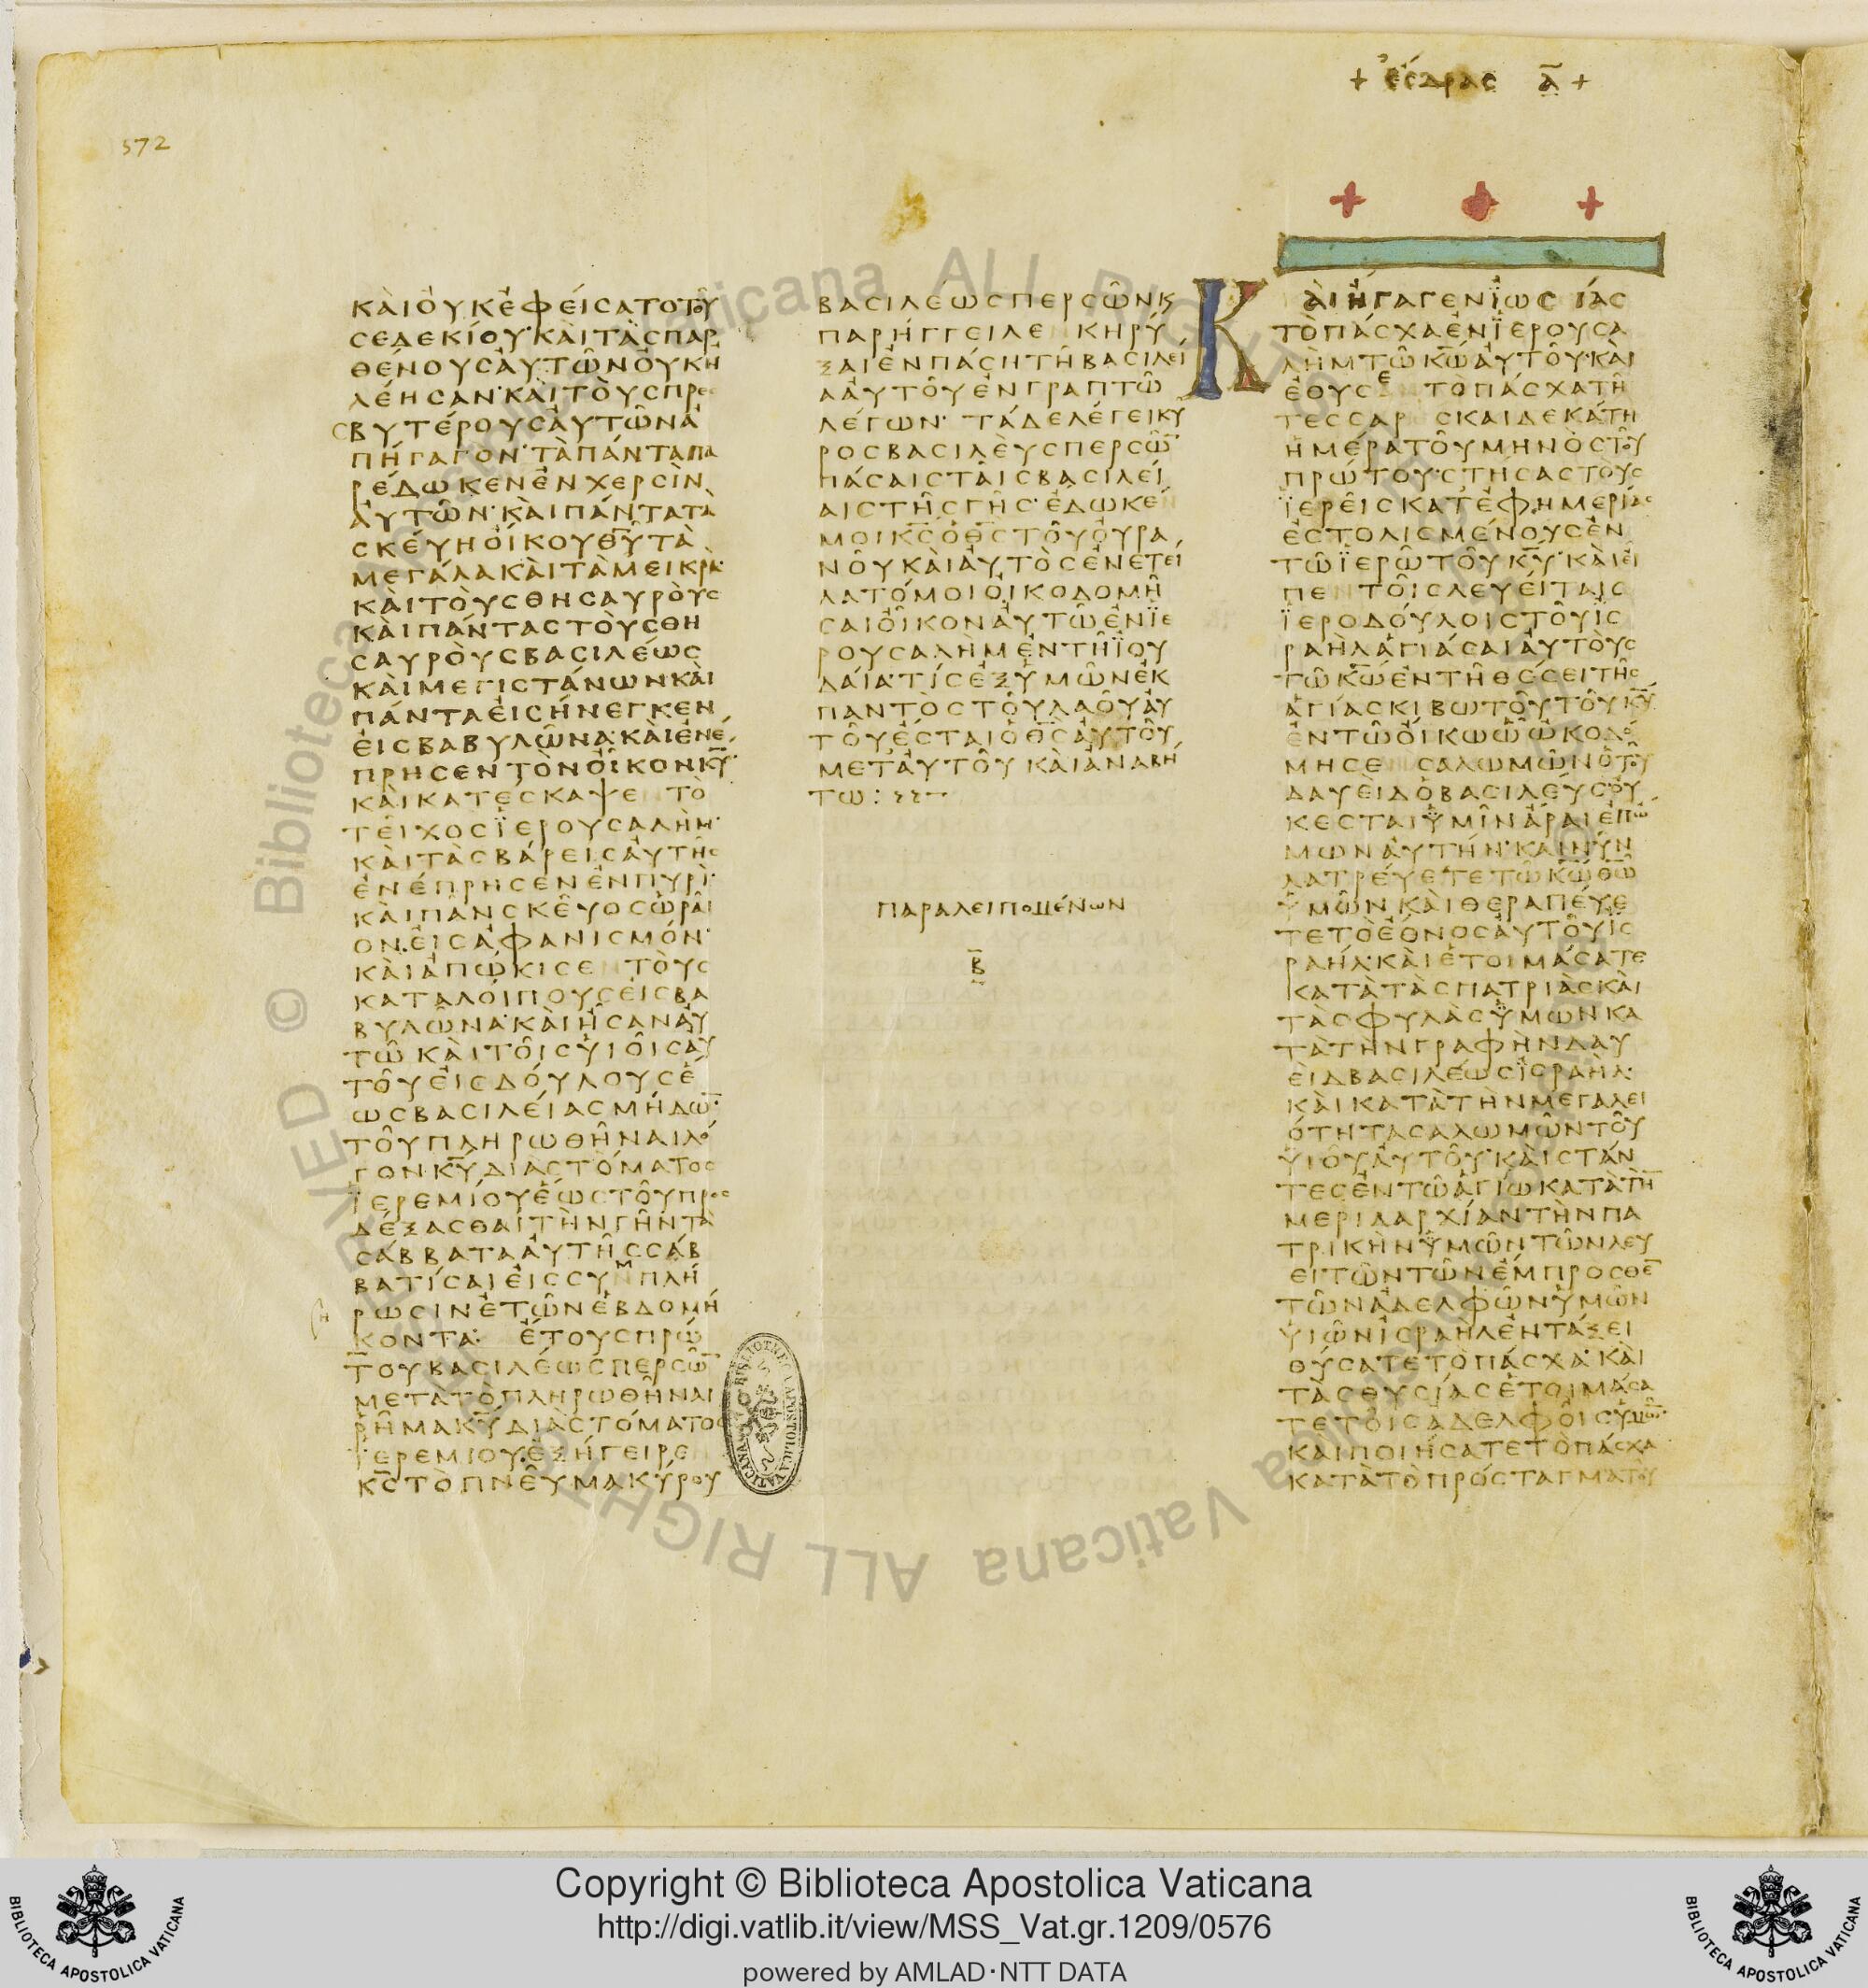 + ἐσδρας ᾱ +
572
ΚΑΙΟΥΚΕΦΕΙСΑΤΟΤΟΥ
СΕΔΕΚΙΟΥ·ΚΑΙΤΑСΠΑΡ
ΘΕΝΟΥСΑΥΤΩΝΟΥΚΗ
ΛΕΗСΑΝ·ΚΑΙΤΟΥСΠΡΕ
СΒΥΤΕΡΟΥСΑΥΤΩΝΑ
ΠΗΓΑΓΟΝ·ΤΑΠΑΝΤΑΠΑ
ΡΕΔΩΚΕΝΕΝΧΕΡСΙΝ
ΑΥΤΩΝ·ΚΑΙΠΑΝΤΑΤΑ
СΚΕΥΗΟΙΚΟΥΘ̅Υ̅ΤΑ
ΜΕΓΑΛΑΚΑΙΤΑΜΕΙΚΡΑ·
ΚΑΙΤΟΥСΘΗСΑΥΡΟΥС
ΚΑΙΠΑΝΤΑСΤΟΥСΘΗ
СΑΥΡΟΥСΒΑСΙΛΕΩС
ΚΑΙΜΕΓΙСΤΑΝΩΝΚΑΙ
ΠΑΝΤΑΕΙСΗΝΕΓΚΕΝ
ΕΙСΒΑΒΥΛΩΝΑ·ΚΑΙΕΝΕ
ΠΡΗСΕΝΤΟΝΟΙΚΟΝΚ̅Υ̅·
ΚΑΙΚΑΤΕСΚΑΨΕΝΤΟ
ΤΕΙΧΟСΪΕΡΟΥСΑΛΗΜ·
ΚΑΙΤΑСΒΑΡΕΙСΑΥΤΗС
ΕΝΕΠΡΗСΕΝΕΝΠΥΡΙ·
ΚΑΙΠΑΝСΚΕΥΟСΩΡΑΙ
ΟΝ·ΕΙСΑΦΑΝΙСΜΟΝ·
ΚΑΙΑΠΩΚΙСΕΝΤΟΥС
ΚΑΤΑΛΟΙΠΟΥСΕΙСΒΑ
ΒΥΛΩΝΑ·ΚΑΙΗСΑΝΑΥ
ΤΩΚΑΙΤΟΙСΥΙΟΙСΑΥ
ΤΟΥΕΙСΔΟΥΛΟΥСΕ
ΩСΒΑСΙΛΕΙΑСΜΗΔΩ̅·
ΤΟΥΠΛΗΡΩΘΗΝΑΙΛΟ
ΓΟΝ·Κ̅Υ̅ΔΙΑСΤΟΜΑΤΟС
ΪΕΡΕΜΙΟΥΕΩСΤΟΥΠΡΟС
ΔΕΞΑСΘΑΙΤΗΝΓΗΝΤΑ
СΑΒΒΑΤΑΑΥΤΗССΑΒ
ΒΑΤΙСΑΙΕΙССΥΜΠΛΗ
ΡΩСΙΝΕΤΩΝΕΒΔΟΜΗ
ΚΟΝΤΑ: ΕΤΟΥСΠΡΩ
ΤΟΥΒΑСΙΛΕΩСΠΕΡСΩ̅
ΜΕΤΑΤΟΠΛΗΡΩΘΗΝΑΙ
ΡΗΜΑΚ̅Υ̅ΔΙΑСΤΟΜΑΤΟС
ΪΕΡΕΜΙΟΥ·ΕΞΗΓΕΙΡΕΝ
Κ̅С̅ΤΟΠΝΕΥΜΑΚΥΡΟΥ
ΒΑСΙΛΕΩСΠΕΡСΩΝΚ
ΠΑΡΗΓΓΕΙΛΕΝΚΗΡΥ
ΞΑΙΕΝΠΑСΗΤΗΒΑСΙΛΕΙ
ΑΑΥΤΟΥΕΝΓΡΑΠΤΩ
ΛΕΓΩΝ· ΤΑΔΕΛΕΓΕΙΚΥ
ΡΟСΒΑСΙΛΕΥСΠΕΡСΩ̅
ΠΑСΑΙСΤΑΙСΒΑСΙΛΕΙ
ΑΙСΤΗСΓΗС·ΕΔΩΚΕΝ
ΜΟΙΚ̅С̅ΟΘ̅С̅ΤΟΥΟΥΡΑ
ΝΟΥΚΑΙΑΥΤΟСΕΝΕΤΕΙ
ΛΑΤΟΜΟΙΟΙΚΟΔΟΜΗ
СΑΙΟΙΚΟΝΑΥΤΩΕΝΪΕ
ΡΟΥСΑΛΗΜΕΝΤΗΪΟΥ
ΔΑΙΑ·ΤΙСΕΞΥΜΩΝΕΚ
ΠΑΝΤΟСΤΟΥΛΑΟΥΑΥ
ΤΟΥΕСΤΑΙΟΘ̅С̅ΑΥΤΟΥ
ΜΕΤΑΥΤΟΥΚΑΙΑΝΑΒΗ
ΤΩ:
ΠΑΡΑΛΕΙΠΟΜΕΝΩΝ
Β̅
ΚΑΙΗΓΑΓΕΝΪΩСΙΑС
ΤΟΠΑСΧΑΕΝΪΕΡΟΥСΑ
ΛΗΜΤΩΚ̅Ω̅ΑΥΤΟΥ·ΚΑΙ
ΕΘΥСΕΝΤΟΠΑСΧΑΤΗ
ΤΕССΑΡΕСΚΑΙΔΕΚΑΤΗ
ΗΜΕΡΑΤΟΥΜΗΝΟСΤΟΥ
ΠΡΩΤΟΥ·СΤΗСΑСΤΟΥС
ΪΕΡΕΙСΚΑΤΕΦΗΜΕΡΙΑС
ΕСΤΟΛΙСΜΕΝΟΥСΕΝ
ΤΩΪΕΡΩΤΟΥΚ̅Υ̅·ΚΑΙΕΙ
ΠΕΝΤΟΙСΛΕΥΕΙΤΑΙС
ΪΕΡΟΔΟΥΛΟΙСΤΟΥΙС
ΡΑΗΛΑΓΙΑСΑΙΑΥΤΟΥС
ΤΩΚ̅Ω̅ΕΝΤΗΘΕСΕΙΤΗС
ΑΓΙΑСΚΙΒΩΤΟΥΤΟΥΚ̅Υ̅
ΕΝΤΩΟΙΚΩΩΩΚΟΔΟ
ΜΗСΕΝСΑΛΩΜΩΝΟΤΟΥ
ΔΑΥΕΙΔΟΒΑСΙΛΕΥС·ΟΥ
ΚΕСΤΑΙΥΜΙΝΑΡΑΙΕΠΩ
ΜΩΝΑΥΤΗΝ·ΚΑΙΝΥΝ
ΛΑΤΡΕΥΕΤΕΤΩΚ̅Ω̅Θ̅Ω̅
ΥΜΩΝΚΑΙΘΕΡΑΠΕΥΕ
ΤΕΤΟΕΘΝΟСΑΥΤΟΥΙС
ΡΑΗΛ·ΚΑΙΕΤΟΙΜΑСΑΤΕ
ΚΑΤΑΤΑСΠΑΤΡΙΑСΚΑΙ
ΤΑСΦΥΛΑСΥΜΩΝΚΑ
ΤΑΤΗΝΓΡΑΦΗΝΔΑΥ
ΕΙΔΒΑСΙΛΕΩСΪСΡΑΗΛ·
ΚΑΙΚΑΤΑΤΗΝΜΕΓΑΛΕΙ
ΟΤΗΤΑСΑΛΩΜΩΝΤΟΥ
ΥΙΟΥΑΥΤΟΥ·ΚΑΙСΤΑΝ
ΤΕСΕΝΤΩΑΓΙΩΚΑΤΑΤΗ̅
ΜΕΡΙΔΑΡΧΙΑΝΤΗΝΠΑ
ΤΡΙΚΗΝΥΜΩΝΤΩΝΛΕΥ
ΕΙΤΩΝΤΩΝΕΜΠΡΟСΘΕ̅
ΤΩΝΑΔΕΛΦΩΝΥΜΩΝ
ΥΙΩΝΙСΡΑΗΛΕΝΤΑΞΕΙ
ΘΥСΑΤΕΤΟΠΑСΧΑ·ΚΑΙ
ΤΑСΘΥСΙΑСΕΤΟΙΜΑСΑ
ΤΕΤΟΙСΑΔΕΛΦΟΙСΥΜΩ̅·
ΚΑΙΠΟΙΗСΑΤΕΤΟΠΑСΧΑ
ΚΑΤΑΤΟΠΡΟСΤΑΓΜΑΤΟΥ
Copyright © Biblioteca Apostolica Vaticana
http://digi.vatlib.it/view/MSS_Vat.gr.1209/0576
powered by AMLAD·NTT DATA
BIBLIOTECA APOSTOLICA VATICANA
BIBLIOTECA APOSTOLICA VATICANA